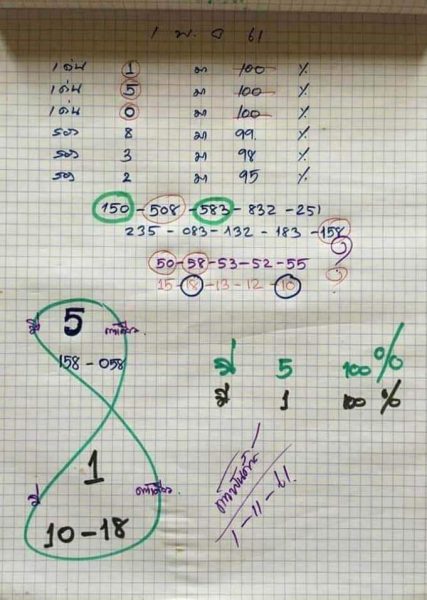 1 พ.ย 61
เด่น 1 มา 100 %
เด่น 5 มา 100 %
เด่น 0 มา 100 %
รอง 8 มา 99 %
รอง 3 มา 98 %
รอง 2 มา 95 %
150 - 508 - 583 - 832 - 251
235 - 083 - 132 - 183 - 158
50 - 58 - 53 - 52 - 55
15 - 18 - 13 - 12 - 10
มี 5
158 - 058
มี 5 100 %
มี 1 100 %
มี 1
10 - 18
1-11-61